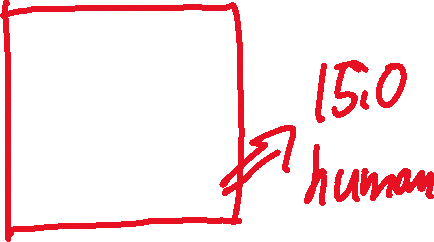 15.0
human